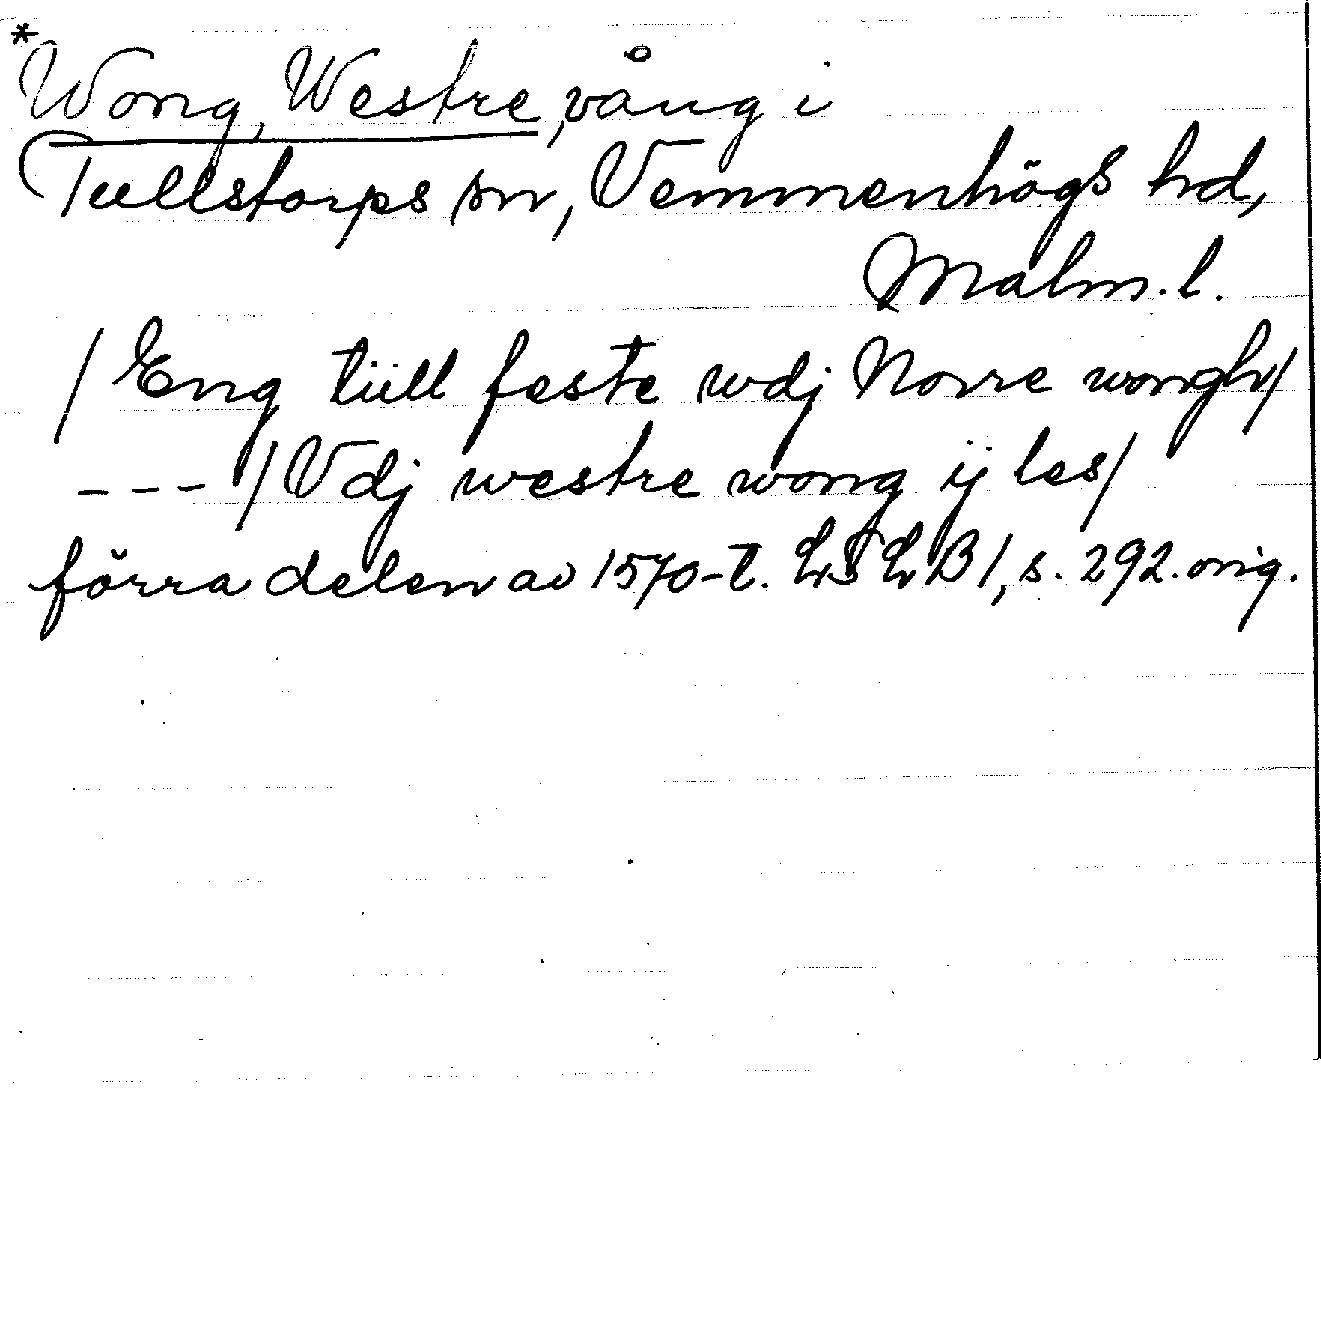 *Wong, Westre, vång i
Tullstorps sn, Vemmenhögs hd,
Malm. l.
/Eng tüll feste wdj Norre wongh/
--- /Vdj westre wong ij les/
förra delen av 1570-t. LSLB 1, s. 292. orig.